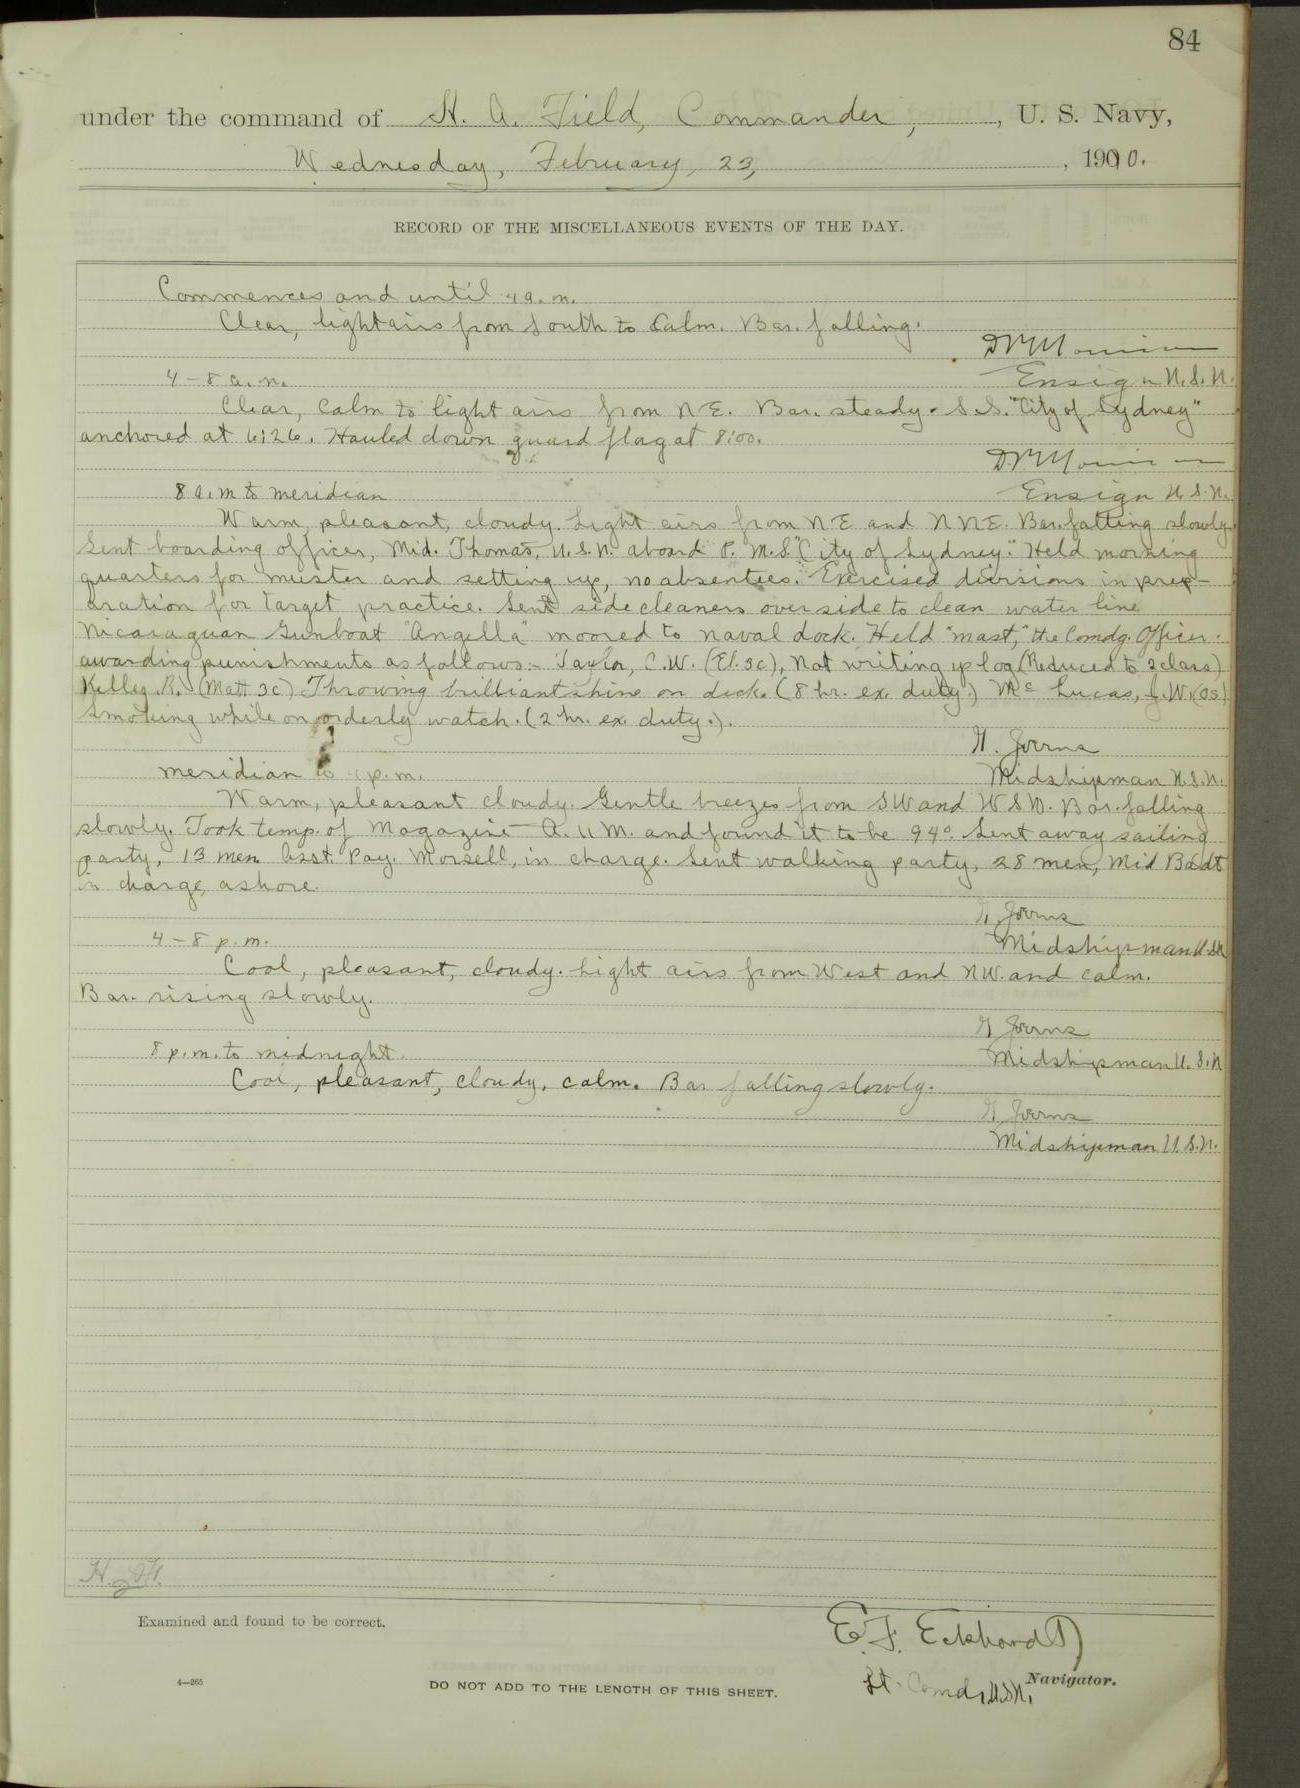 84
under the command of H. A. Field, Commander, , U. S. Navy,
Wednesday, February, 23, , 1910.
RECORD OF THE MISCELLANEOUS EVENTS OF THE DAY.
Commences and until 4 a.m.
Clear, light airs from South to Calm. Bar. falling.
4 – 8 a.m.
Ensign U.S.N.
Clear, Calm to light airs from NE. Bar. steady. S.S. "City of Sydney"
anchored at 6:26. Hauled down guard flag at 8:00.
8 a.m to meridian
Ensign U.S.N.
Warm, pleasant, cloudy. Light airs from NE and NNE. Bar. falling slowly.
Sent boarding officer, Mid. Thomas, U.S.N. aboard P.M.S. "City of Sydney." Held morning
quarters for muster and setting up, no absentees. Exercised divisions in prep-
aration for target practice. Sent side cleaners over side to clean water line
Nicaraguan Gunboat "Angella" moored to naval dock. Held "mast," the Comdg. Officer
awarding punishments as follows:- Taylor, C.W. (El. 3c), Not writing up log (Reduced to 2 class)
Kelley R. (Matt 3c) Throwing brilliantshine on deck. (8 hr. ex. duty.) McLucas, J.W. (OS)
Smoking while on orderly watch. (2 hr. ex. duty.).
G. Joerns
meridian to 4 p.m.
Midshipman U.S.N.
Warm, pleasant cloudy. Gentle breezes from SW and WSW. Bar. falling
slowly. Took temp. of Magazine A. 11 M. and found it to be 94°. Sent away sailing
party, 13 men Asst. Pay. Morsell, in charge. Sent walking party, 28 men, Mid Badt
in charge, ashore.
G. Joerns
4 – 8 p.m.
Midshipman U.S.N
Cool, pleasant, cloudy. Light airs from West and NW. and calm.
Bar. rising slowly.
G Joerns
8 p.m. to midnight.
Midshipman U.S.N
Cool, pleasant, cloudy, calm. Bar falling slowly.
G. Joerns
Midshipman U.S.N.
Examined and found to be correct.
E. F. Eckhardt
Lt. Comdr, U.S.N. Navigator.
4—265
DO NOT ADD TO THE LENGTH OF THIS SHEET.